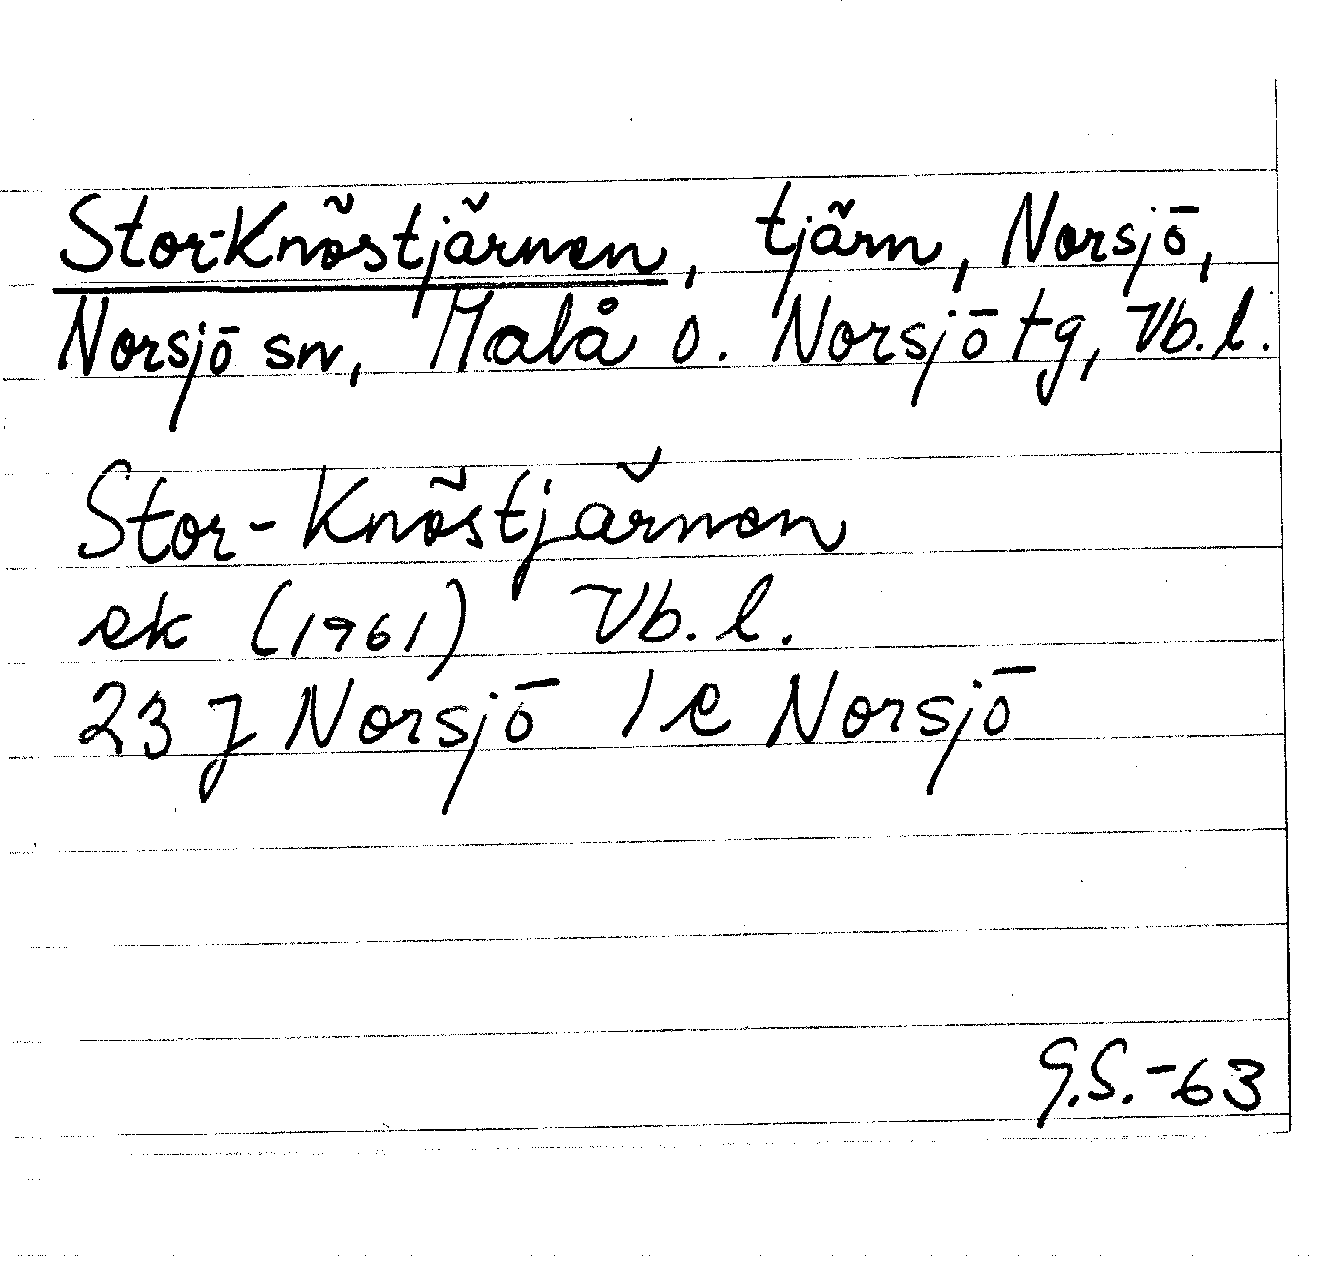 Stor-Knöstjärnen, tjärn, Norsjö,
Norsjö sn, Malå o. Norsjö tg, Vb. l.
Stor-Knöstjärnen
ek (1961) Vb. l.
23 J Norsjö 1 e Norsjö
G.S.-63